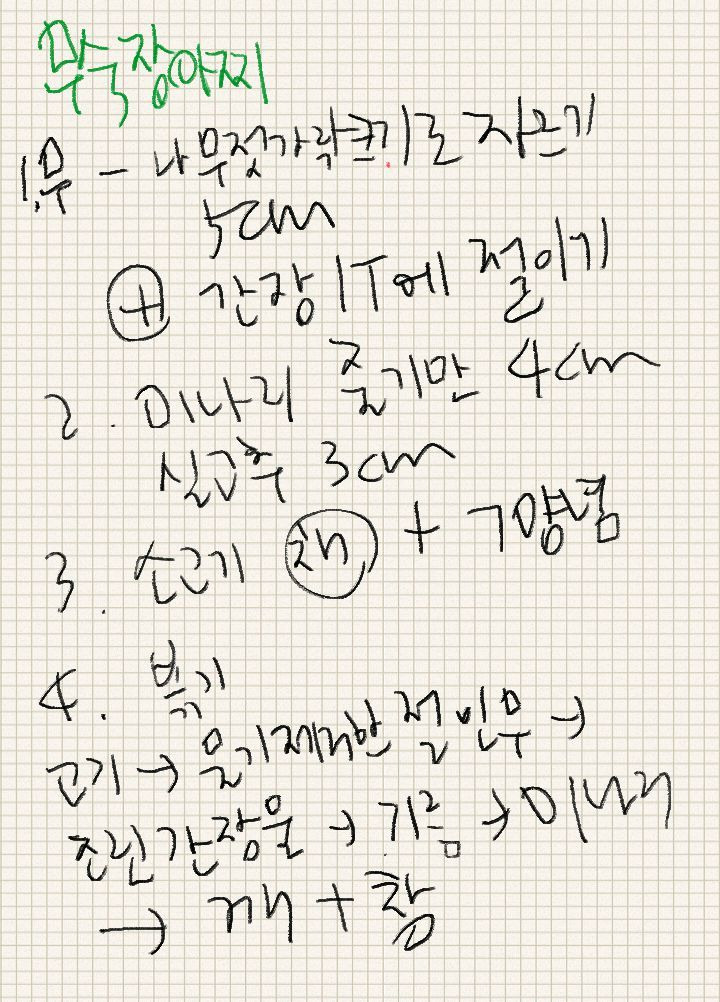 무숙장아찌
1. 무 - 나무젓가락크기로 자르기
5cm
+ 간장 1T에 절이기
2. 미나리 줄기만 4cm
실고추 3cm
3. 소고기 채 + 갖양념
4. 볶기
고기 → 물기제거한 절인무 →
조린간장물 → 기름 → 미나리
→ 깨 + 참